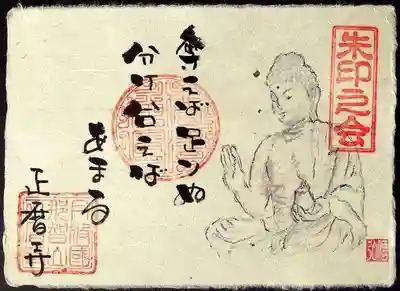 朱印之会
奪えば足りぬ
分け合えば
あまる
正暦寺